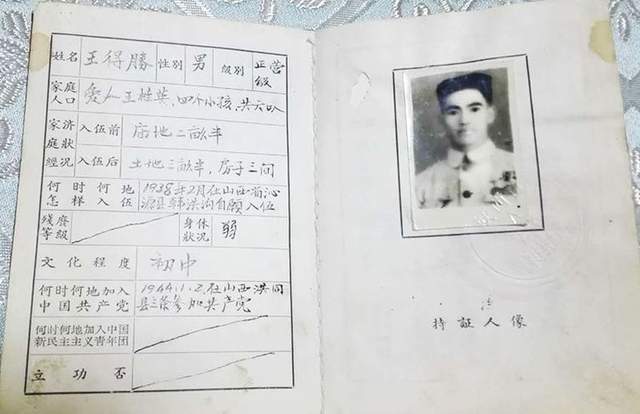 姓名 王得勝 性别 男 级别 正营级
家庭人口 愛人王桂英，四个小孩，共六口
家庭經济狀况 入伍前 亩地二畝半
入伍后 土地三畝半，房子三间
何时何地怎样入伍 1938年2月在山西省沁源县韩洪沟自願入伍
残廢等級
身体狀况 弱
文化程度 初中
何时何地加入中国共产党 1944.1.2.在山西洪同县三条参加共产党
何时何地加入中国新民主主义青年团
立功否
持証人像